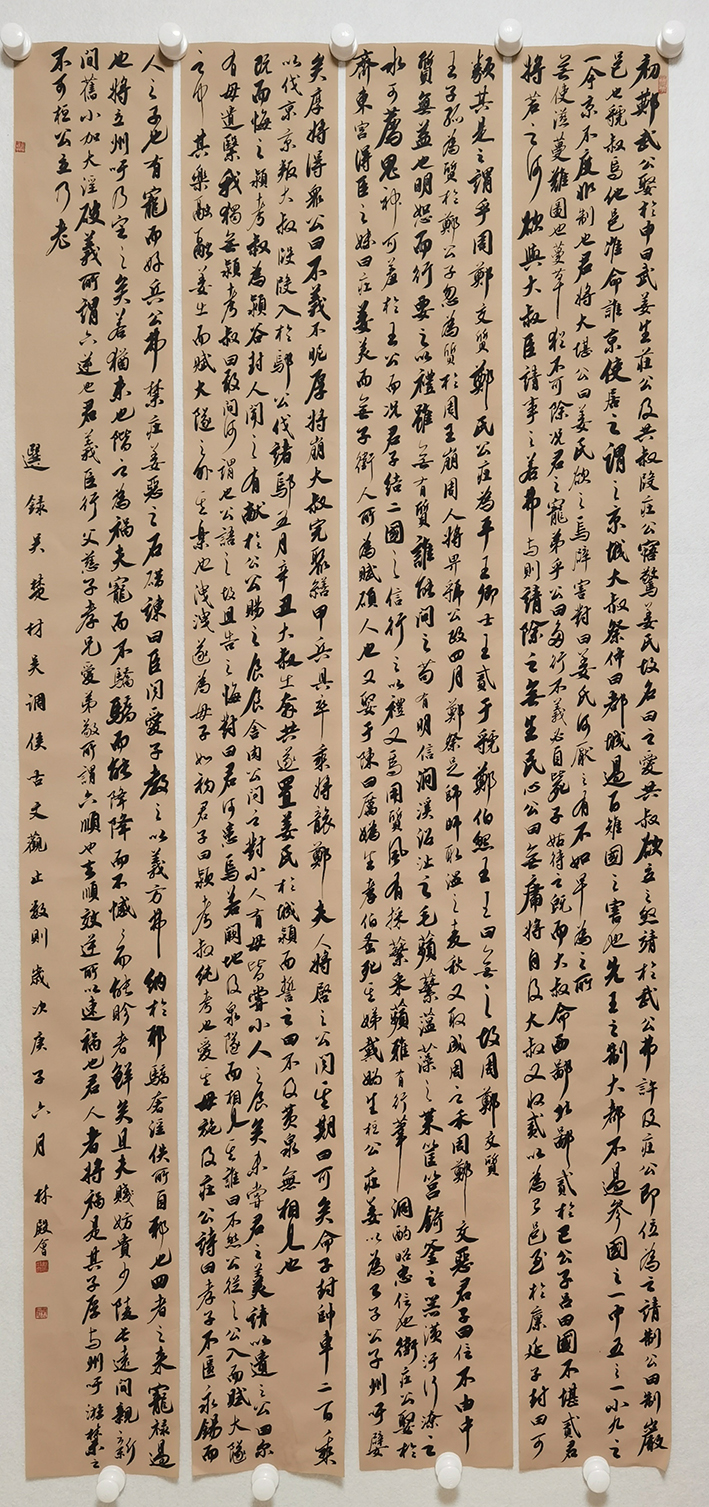 初鄭武公娶於申曰武姜生莊公及共叔段莊公寤驚姜氏故名曰之愛共叔欲立之亟請於武公弗許及莊公即位為之請制公曰制巖
邑也虢叔焉他邑唯命誰京使居之謂之京城大叔祭仲曰都城過百雉國之害也先王之制大都不過參國之一中五之一小九之
一今京不度非制也君將大堪公曰姜氏欲之焉辟害對曰姜氏何厭之有不如早為之所
無使滋蔓難圖也蔓草猶不可除況君之寵弟乎公曰多行不義必自斃子姑待之既而大叔命西鄙北鄙貳於己公子呂曰國不堪貳君
將若之何欲與大叔臣請事之若弗與則請除之無生民心公曰無庸將自及大叔又收貳以為己邑至於廩延子封曰可
矣厚將得眾公曰不義不昵厚將崩大叔完聚繕甲兵具卒乘將襲鄭夫人將啓之公聞其期曰可矣命子封帥車二百乘
以伐京京叛大叔段段入於鄢公伐諸鄢五月辛丑大叔出奔共遂置姜氏於城潁而誓之曰不及黃泉無相見也
既而悔之潁考叔為潁谷封人聞之有獻於公公賜之食食舍肉公問之對小人有母皆嘗小人之食矣未嘗君之羹請以遺之公曰爾
有母遺緊我獨無潁考叔曰敢問何謂也公語之故且告之悔對曰君何患焉若闕地及泉隧而相見其誰曰不然公從之公入而賦大隧
之中其樂融融姜出而賦大隧之外其樂也洩洩遂為母子如初君子曰潁考叔純孝也愛其母施及莊公詩曰孝子不匱永錫而
類其是之謂乎周鄭交質鄭氏公莊為平王卿士王貳于虢鄭伯怨王王曰無之故周鄭交質
王子孤為質於鄭公子忽為質於周王崩周人將畀虢公政四月鄭祭足師師取溫之麥秋又取成周之禾周鄭交惡君子曰信不由中
質無益也明恕而行要之以禮雖無有質誰能間之苟有明信澗溪沼沚之毛蘋蘩薀藻之菜筐筥錡釜之器潢汙行潦之
水可薦鬼神可羞於王公而況君子結二國之信行之以禮又焉用質風有採蘩采蘋雅有行葦泂酌昭忠信也衛莊公娶於
齊東宮得臣之妹曰莊姜美而無子衛人所為賦碩人也又娶于陳曰厲媯生孝伯蚤死其娣戴媯生桓公莊姜以為己子公子州吁嬖
人之子也有寵而好兵公弗禁莊姜惡之石碏諫曰臣聞愛子教之以義方弗納於邪驕奢淫佚所自邪也四者之來寵祿過
也將立州吁乃定之矣若猶未也階之為禍夫寵而不驕驕而能降降而不憾憾而能眕者鮮矣且夫賤妨貴少陵長遠間親新
間舊小加大淫破義所謂六逆也君義臣行父慈子孝兄愛弟敬所謂六順也去順效逆所以速禍也君人者將禍是其子厚與州吁游禁之
不可桓公立乃老
選錄吳楚材吳調侯古文觀止數則歲次庚子六月林殷會